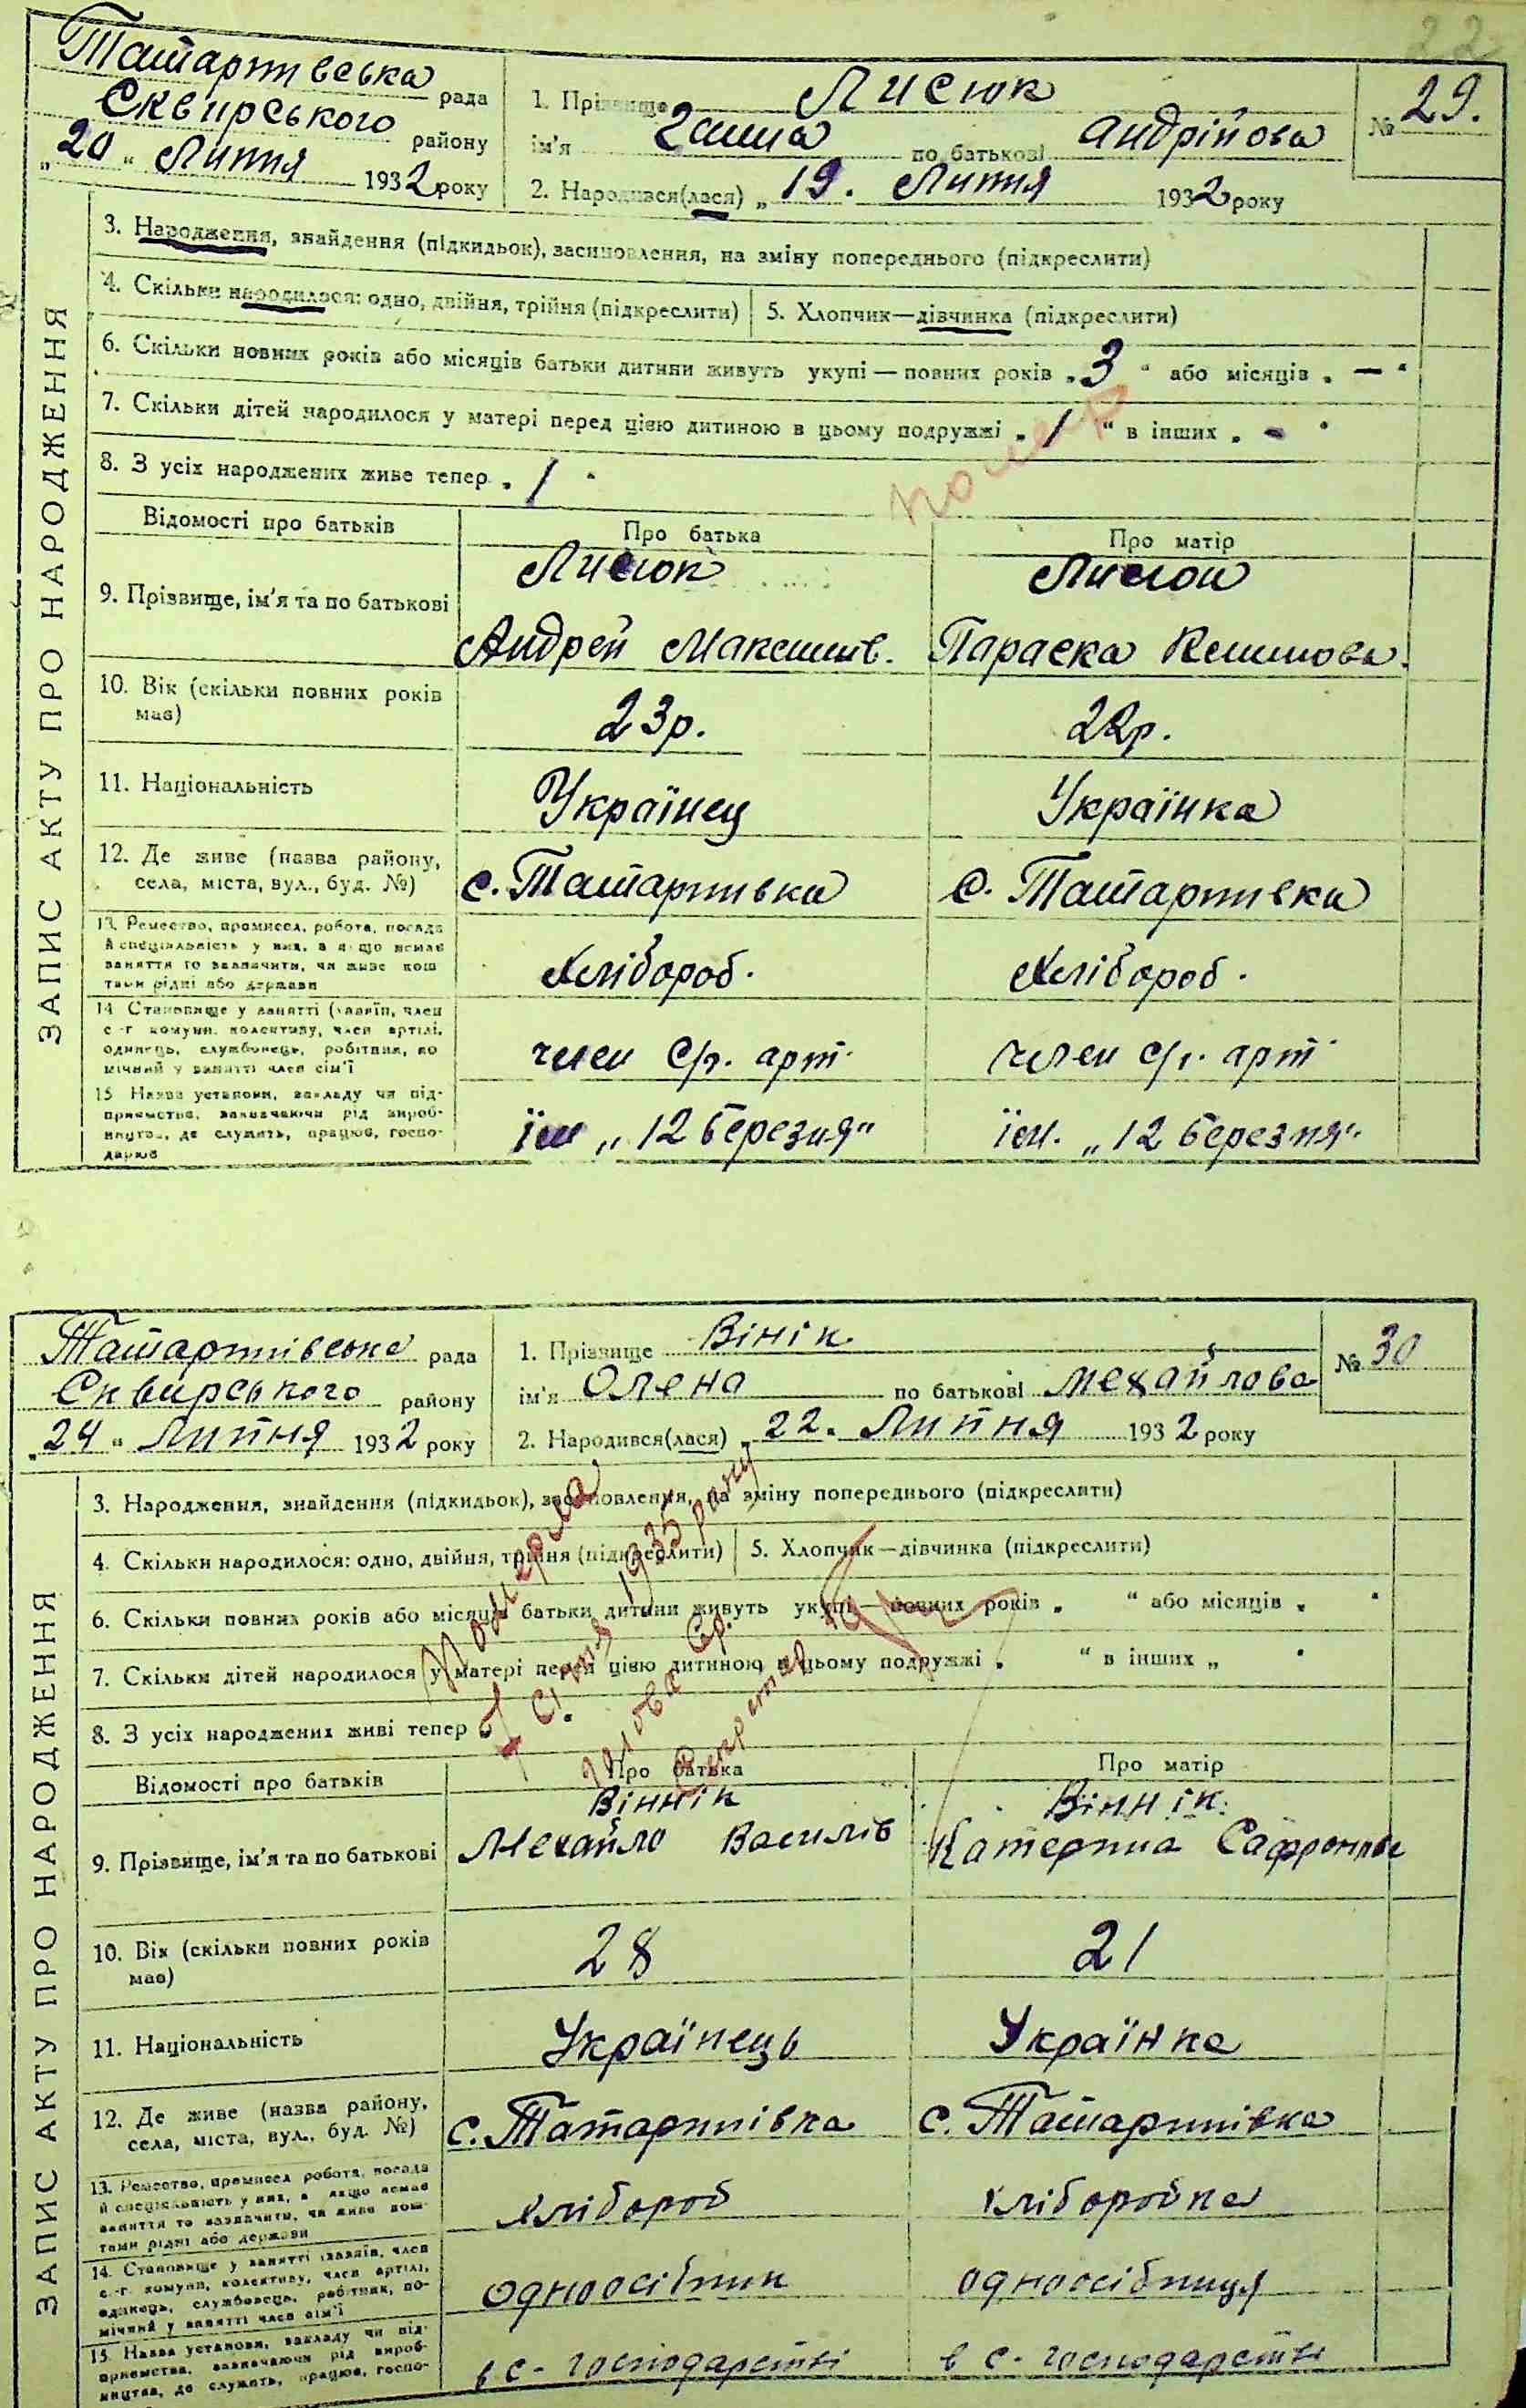 22
Татаринвська рада
Сквирського району
„20“ Липня 1932 року
1. Прізвище Лисюк
ім'я Ганна по батькові Андрійова
2. Народився(лася) „19. Липня 1932 року
№ 29.
ЗАПИС АКТУ ПРО НАРОДЖЕННЯ
3. Народження, знайдення (підкидьок), засиновлення, на зміну попереднього (підкреслити)
4. Скільки народилося: одно, двійня, трійня (підкреслити) 5. Хлопчик—дівчинка (підкреслити)
6. Скільки повних років або місяців батьки дитини живуть укупі—повних років „3“ або місяців „—“
7. Скільки дітей народилося у матері перед цією дитиною в цьому подружжі „1“ в інших „-“
8. З усіх народжених живе тепер „1“
помер
Відомості про батьків Про батька Про матір
9. Прізвище, ім'я та по батькові
Лисюк Лисюк
Андрей Максимів. Параска Климова.
10. Вік (скільки повних років має) 23р. 22р.
11. Національність Українец Українка
12. Де живе (назва району, села, міста, вул., буд. №) с. Татаринвка с. Татаринвка
13. Ремество, промисел, робота, посада й спеціяльність у них, а якщо немає заняття то зазначити, чи живе коштами рідні або держави
Хлібороб. Хлібороб.
14. Становище у занятті (хазяїн, член с.-г. комуни, колективу, член артілі, одинець, службовець, робітник, помічний у занятті член сім'ї
член С/г. арт. член с/г. арт.
15. Назва установи, закладу чи підприємства, зазначаючи рід виробництва, де служить, працює, господарює
ім „12 березня“ ім. „12 березня“.
Татаринівська рада
Сквирського району
„24“ Липня 1932 року
1. Прізвище Вінік
ім'я Олена по батькові Михайлова
2. Народився(лася) „22. Липня 1932 року
№ 30
ЗАПИС АКТУ ПРО НАРОДЖЕННЯ
3. Народження, знайдення (підкидьок), засиновлення, на зміну попереднього (підкреслити)
4. Скільки народилося: одно, двійня, трійня (підкреслити) 5. Хлопчик—дівчинка (підкреслити)
6. Скільки повних років або місяців батьки дитини живуть укупі—повних років „ “ або місяців „ “
7. Скільки дітей народилося у матері перед цією дитиною в цьому подружжі „ “ в інших „ “
8. З усіх народжених живі тепер
Померла
Січня 1935 року
голова Ср.
Секретар
Відомості про батьків Про батька Про матір
9. Прізвище, ім'я та по батькові
Віннік Віннік.
Мехайло Василів Катерина Сафронове
10. Вік (скільки повних років має) 28 21
11. Національність Українець Українка
12. Де живе (назва району, села, міста, вул., буд. №) с. Татаринівка с. Татаринівка
13. Ремество, промисел робота, посада й спеціяльність у них, а якщо немає заняття то зазначити, чи живе коштами рідні або держави
хлібороб хліборобка
14. Становище у занятті (хазяїн, член с.-г. комуни, колективу, член артілі, одинець, службовець, робітник, помічний у занятті член сім'ї
одноосібник одноосібниця
15. Назва установи, закладу чи підприємства, зазначаючи рід виробництва, де служить, працює, госпо-
в с-господарстві в с-господарстві